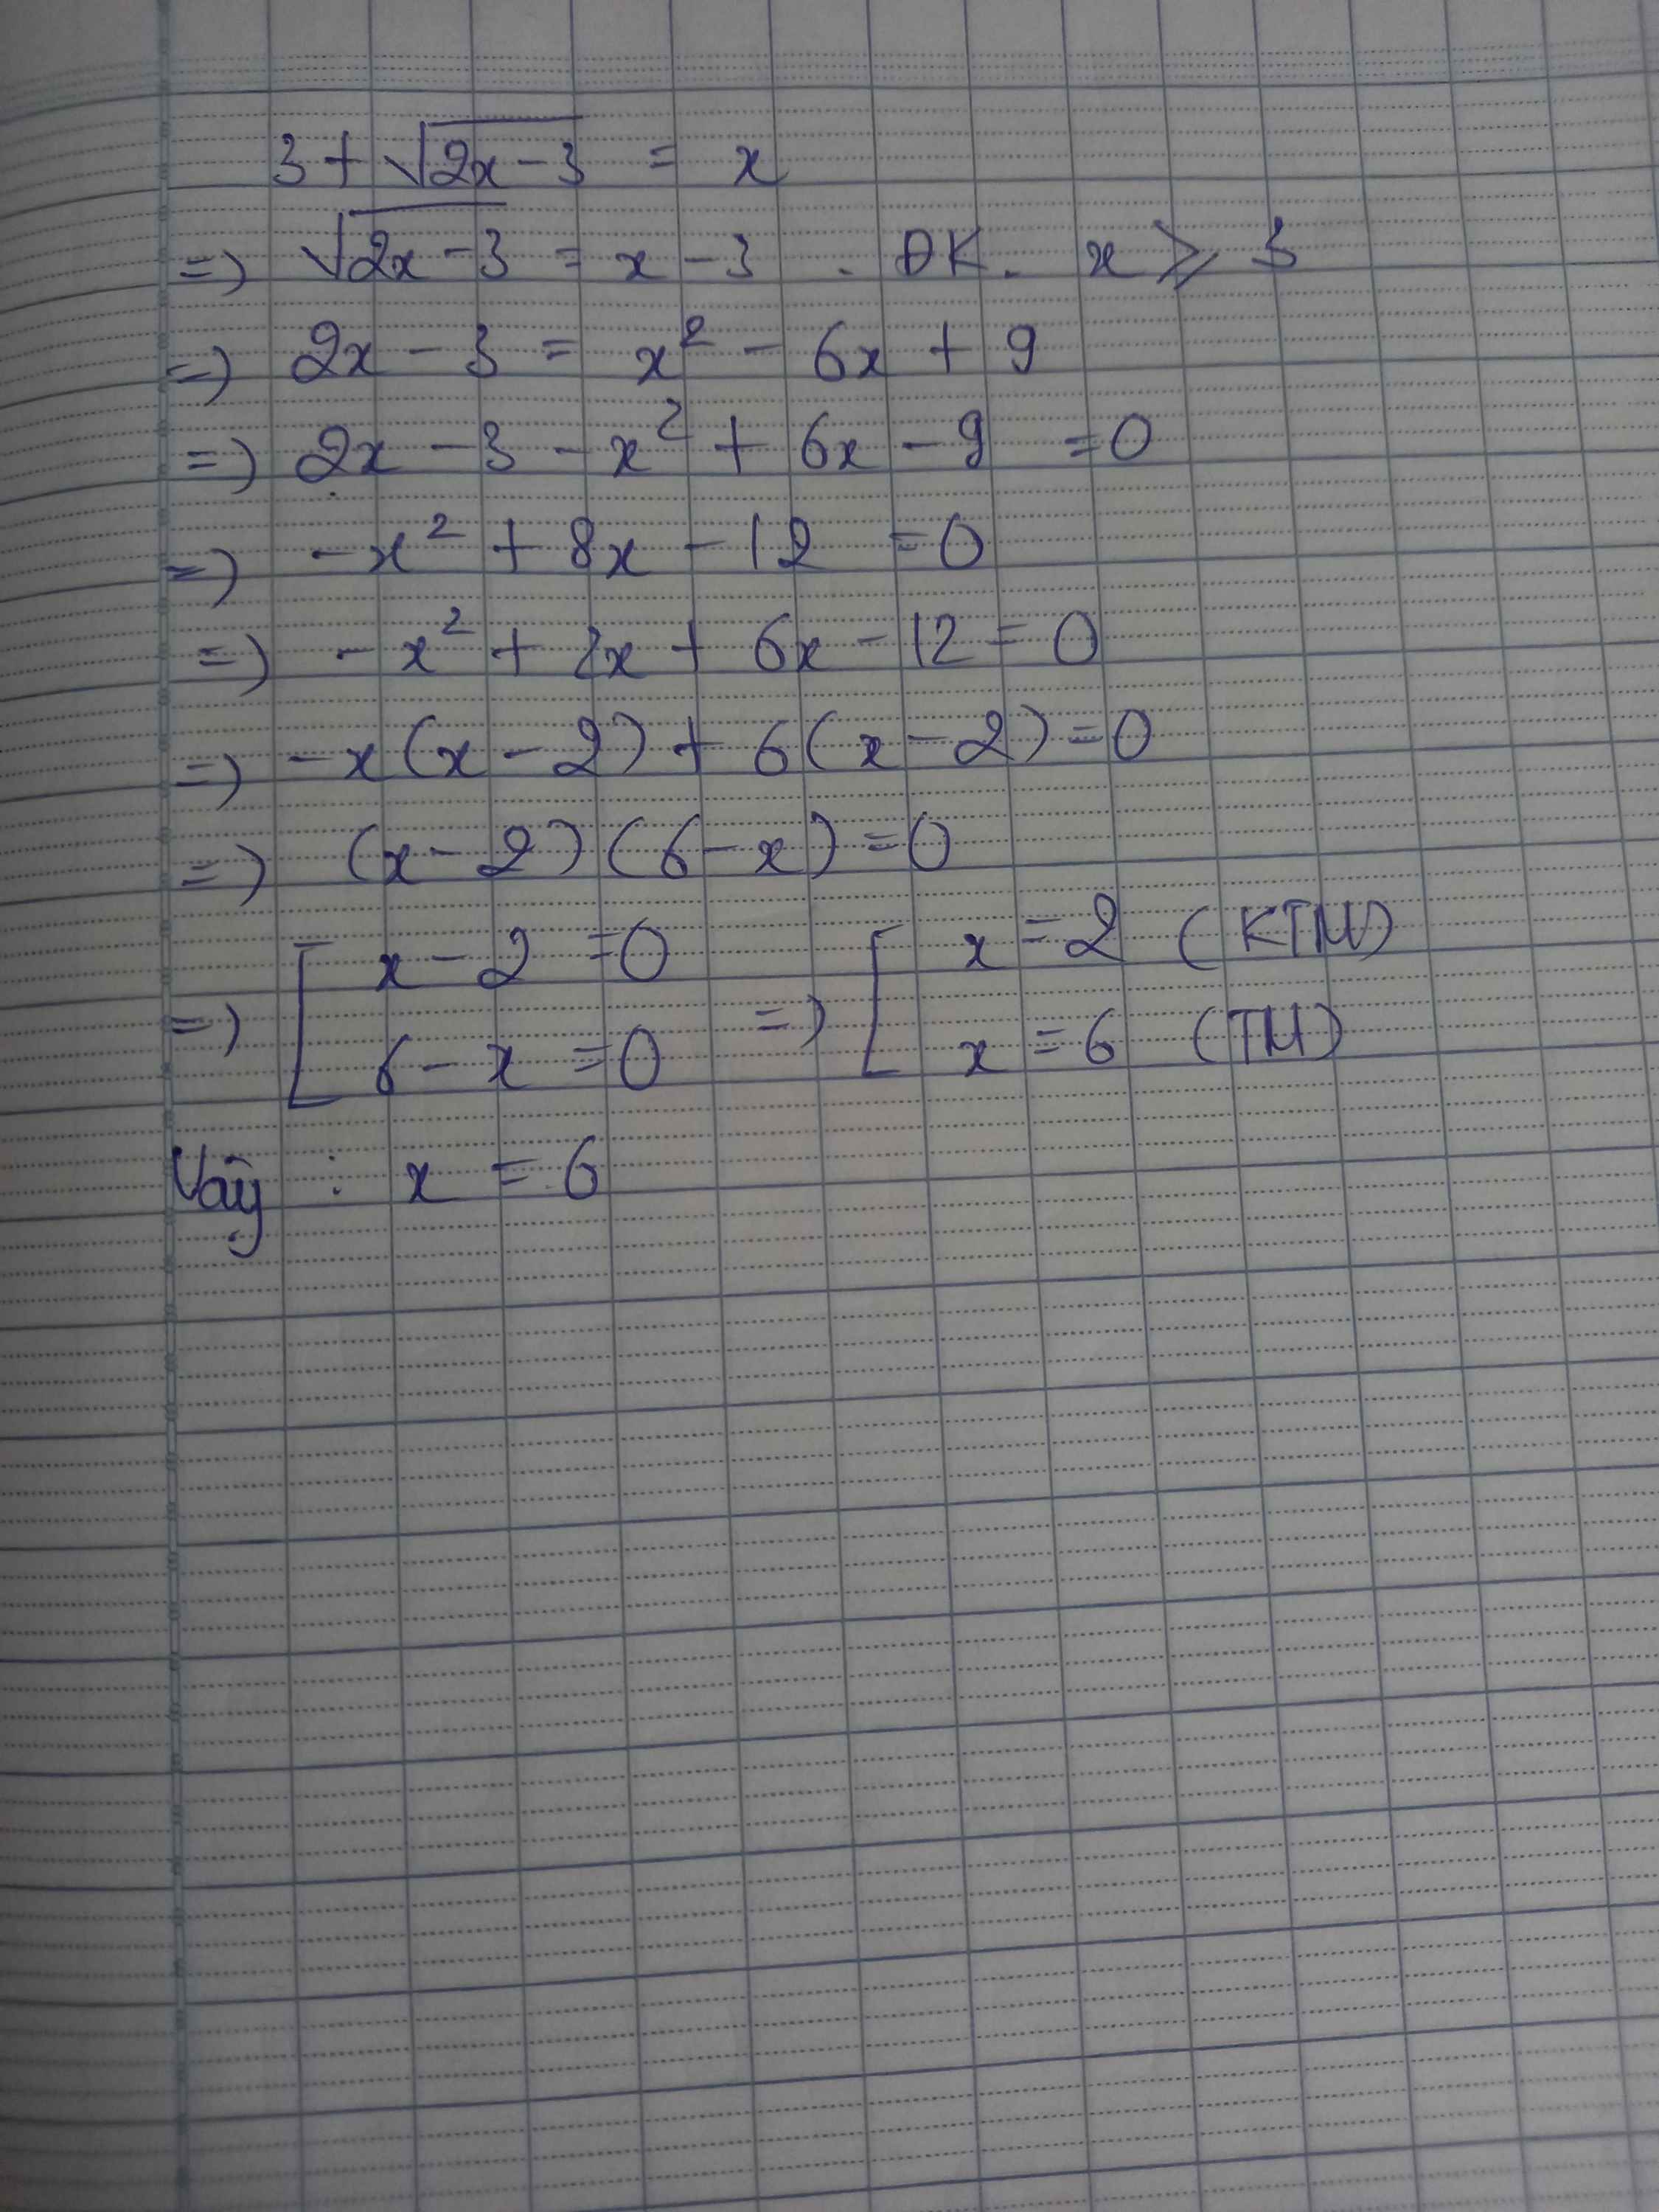 3 + √(2x - 3) = x
=) √(2x - 3) = x - 3 . ĐK. x ⩾ 3
=) 2x - 3 = x² - 6x + 9
=) 2x - 3 - x² + 6x - 9 = 0
=) - x² + 8x - 12 = 0
=) - x² + 2x + 6x - 12 = 0
=) - x(x - 2) + 6(x - 2) = 0
=) (x - 2)(6 - x) = 0
=) [ x - 2 = 0 =) [ x = 2 (KTM)
6 - x = 0 x = 6 (TM)
Vậy : x = 6